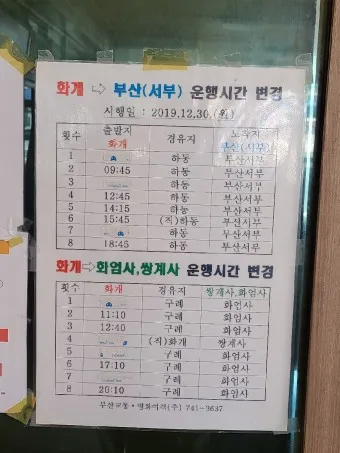 화개 ⇨ 부산(서부) 운행시간 변경
시행일 : 2019.12.30.(월)
횟수 출발지 화개 경유지 부산(서부)
1 하동 부산서부
2 09:45 하동 부산서부
3 하동 부산서부
4 12:45 하동 부산서부
5 14:15 하동 부산서부
6 15:45 (직)하동 부산서부
7 하동 부산서부
8 18:45 하동 부산서부
화개⇨화엄사,쌍계사 운행시간 변경
횟수 화개 경유지 쌍계사,화엄사
1 구례 화엄사
2 11:10 구례 화엄사
3 12:40 구례 화엄사
4 (직)화개 쌍계사
5 구례 화엄사
6 17:10 구례 화엄사
7 구례 화엄사
8 20:10 구례 화엄사
부산교통·영화여객(주) 741-3637